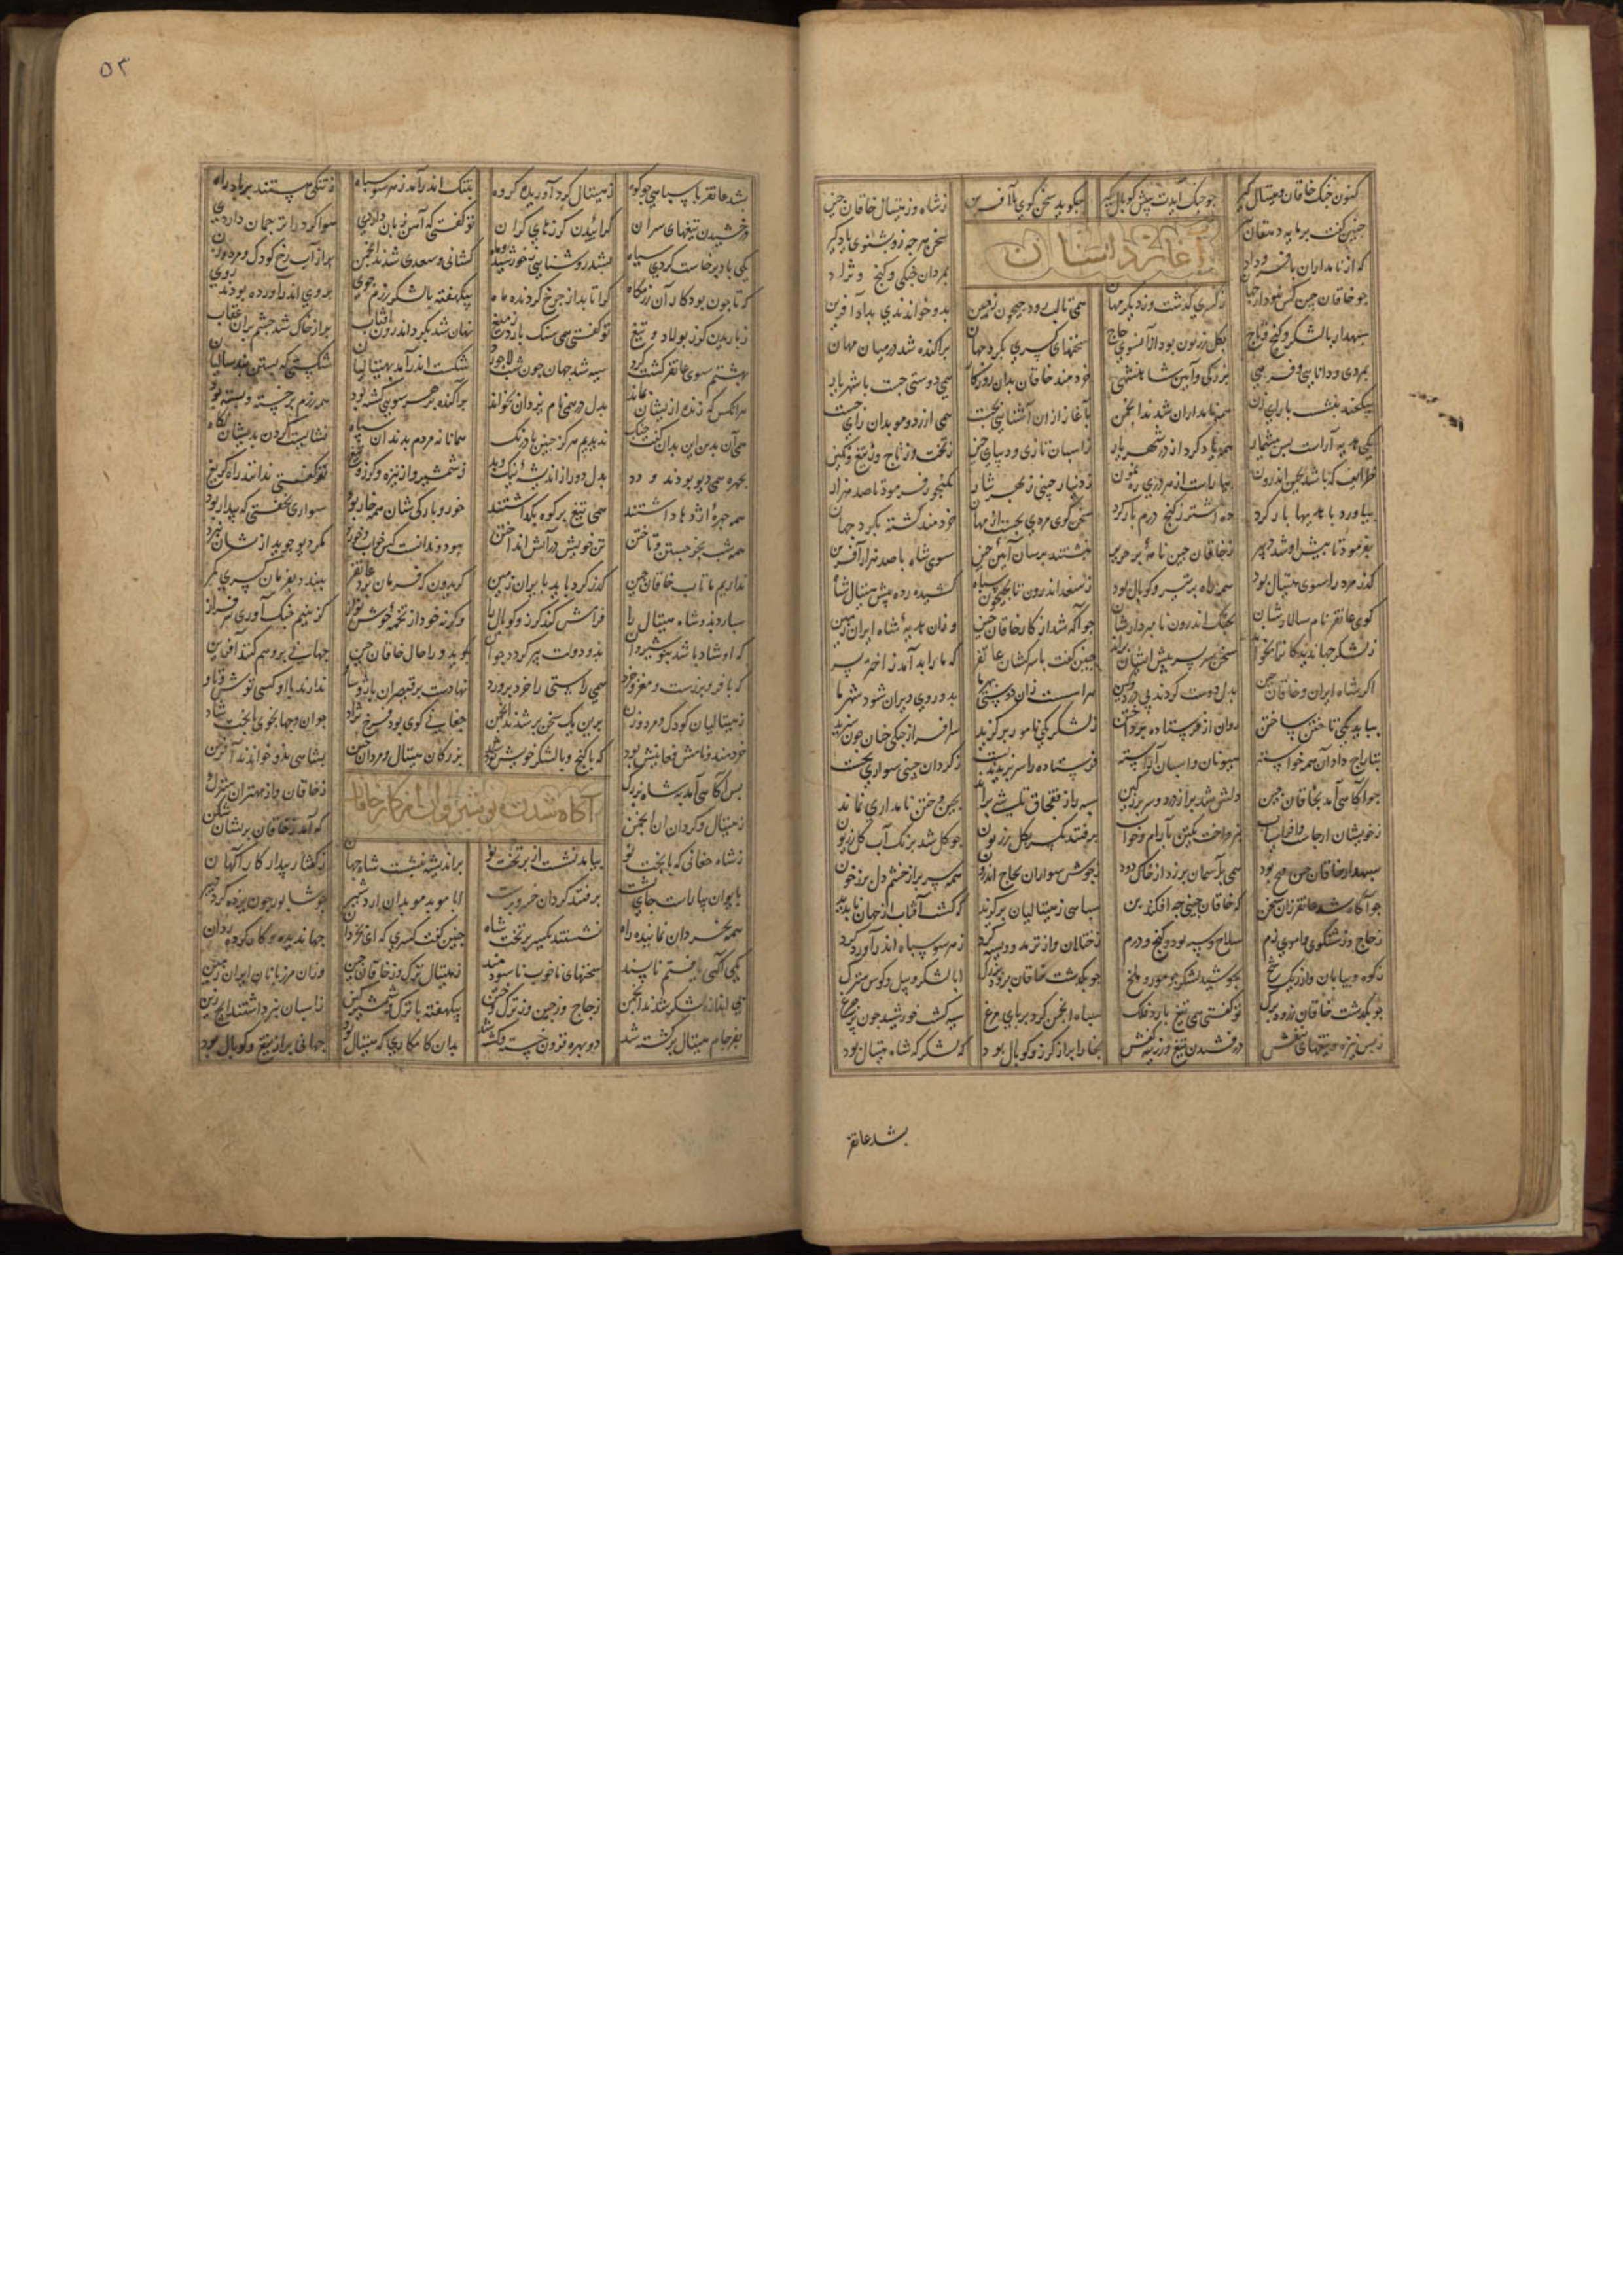 کنون جنگ خاقان و هیتال گیر چو جنگ آیدت پیش کوپال گیر چه گوید سخن گوی باآفرین ز شاه و ز هیتال خاقان چین
چنین گفت پرمایه دهقان پیر سخن هرچه زو بشنوی یادگیر
آغاز داستان
که از نامداران با فر و داد بمردان جنگی و گنج و نژاد
چو خاقان چین کس نبود از جهان ز کسری گذشت و ز دیگر مهان همی تا لب رود جیحون ز چین بدو خواندندی بداد آفرین
سپهدار با لشکر و گنج و تاج بگلزریون بود ازانسوی چاج سخنهای کسری بگرد جهان پراکنده شد در میان مهان
بمردی و دانایی و فرهی بزرگی و آیین شاهنشهی خردمند خاقان بدان روزگار همی دوستی جست با شهریار
یکچند بنشست با رای زن همه نامداران شدند انجمن بآغاز ازان آشنایی بجست همی از رد و موبدان رای جست
یکی هدیه آراست پس بیشمار همه یاد کرد از در شهریار ز اسبان تازی و دیبای چین ز تخت و ز تاج و ز تیغ و نگین
طرایف که باشد بچین اندرون بیاراست از هر دری رهنمون ز دینار چینی ز بهر نثار بگنجور فرمود تا صد هزار
بیاورد با هدیها بار کرد ده اشتر ز گنج درم بار کرد سخن گوی مردی بجست از مهان خردمند گشته بگرد جهان
بفرمود تا پیش او شد دبیر ز خاقان چین نامه بر حریر نبشتند برسان آیین چین سوی شاه با صد هزار آفرین
گذر مرد را سوی هیتال بود همه راه پر تیر و کوپال بود ز سغد اندرون تا بجیحون سپاه کشیده رده پیش هیتال شاه
گوی غاتفر نام سالارشان بجنگ اندرون نامبردارشان چو آگه شد از کار خاقان چین وزان هدیه شاه ایران زمین
ز لشکر جهاندیدگان را بخواند سخن سربسر پیش ایشان براند چنین گفت با سرکشان غاتفر که ما را بد آمد ز اختر بسر
اگر شاه ایران و خاقان چین بدل دوست گردند هراسست زان دوستی بهر ما بدو روی ویران شود شهر ما
بباید یکی تاختن ساختن روان از فرستاده پرداختن ز لشکر یکی نامور برگزید سرافراز جنگی چنان چون سزید
بتاراج داد آن همه خواسته هیونان و اسبان آراسته فرستاده را سر بریدند پست ز گردان چینی سواری بجست
چو آگاهی آمد بخاقان چین دلش شد پر از درد و سر پر ز کین سپه را ز براند بچین و ختن نامداری نماند
ز خویشان ارجاسب و افراسیاب نپرداخت یکتن بآرام و خواب برفتند یکسر بگلزریون
سپهدار خاقان چین سنجه بود همی بآسمان برزد از خاک دود ز جوش سواران بچاج اندرون همه سر پر از خشم دل پر ز خون
چو آگاه شد غاتفر زان سخن که خاقان چینی چه افکند بن سپاهی ز هیتالیان برگزید که گشت آفتاب از جهان ناپدید
سلاح و سپه بود و گنج و درم ز ختلان و از ترمد و ویسه گرد ز هر سو سپاه اندرآورد گرد
ز کوه و بیابان و از ریگ شخ بجوشید لشکر چو مور و ملخ چو بگذشت خاقان برود بزرگ ابا لشکر و پیل و کوس سترگ
چو بگذشت خاقان ز رود برک تو گفتی همی تیغ بارد فلک سپاه انجمن کرد بر پای مرغ سیه گشت خورشید چون پر چرغ
ز بس نیزه و تیغهای بنفش درفشیدن تیغ و زرینه کفش بخارا پر از گرز و کوپال بود که لشکر که شاه هیتال بود
بشد غاتفر
۵۳
بشد غاتفر با سپاهی چو کوه ز هیتال گرد آوریده گروه بتنگ اندرآمد ز هر سو سپاه ز تنگی ببستند بر باد راه
درخشیدن تیغهای سران گراییدن گرزهای گران تو گفتی که آهن زبان داردی هوا گرد را ترجمان داردی
یکی باد برخاست گردی سیاه بشد روشنایی ز خورشید و ماه کشانی و سغدی شدند انجمن پر از آب رخ کودک و مرد و زن
که تا چون بود کار آن رزمگاه کرا تابد از چرخ گردنده ماه یکهفته با لشکر رزم جوی بروی اندرآورده بودند روی
ز باریدن گرز پولاد و تیغ تو گفتی همی سنگ بارد ز میغ نهان شد بگرد اندرون آفتاب پر از خاک شد چشم پران عقاب
بهشتم سوی غاتفر گشت گرد سیه شد جهان چون شب لاجورد شکست اندرآمد بهیتالیان شکستی که بستن
هرانکس که زنده ازیشان بماند بدل در همی نام یزدان بخواند پراکنده بر هر سویی کشته بود همه رزم پر خسته و بسته بود
همی آن بدین این بدان گفت جنگ ندیدیم هرگز چنین با درنگ همانا نه مردم بدند آن سپاه نشایست کردن بدیشان نگاه
بچهره همی دیو بودند و دد بدل دور از اندیشه نیک و بد ز شمشیر و از نیزه و گرز و تیغ تو گفتی ندانند راه گریغ
همه چهره اژدها داشتند همی تیغ بر کوه بگذاشتند
همه شب بجز جستن و تاختن تن خویش در آتش انداختن
نداریم ما تاب خاقان چین گذر کرد باید بایران زمین گر ایدون که فرمان برد غاتفر ببندد بفرمان کسری کمر
سپارد بدو شاه هیتال را فرامش کند گرز و کوپال را وگرنه خود از تخمه خوش نواز گزینیم جنگ آوری سرفراز
که او شاد باشد بنوشیروان بدو دولت پیر گردد جوان بگوید ورا حال خاقان چین جهانی برو هم کنند آفرین
که با فر و برزست و مغز و خرد همی راستی را خرد پرورد نهادست بر قیصران باژ و ساو ندارند با او کسی توش و تاو
ز هیتالیان کودک و مرد و زن برین یک سخن بر شدند انجمن چغانی گوی بود فرخ نژاد جوان و جهانجوی با بخت شاد
خردمند و نامش فغانیش بود که با گنج و با لشکر خویش بود بزرگان هیتال و مردان چین بشاهی بدو خواندند آفرین
آگاه شدن نوشیروان از کار خاقان
پس آگاهی آمد بشاه بزرگ ز خاقان و از مهتران سترگ
ز هیتال و گردان آن انجمن که آمد ز خاقان بریشان شکن
ز شاه چغانی که با بخت نو بیامد نشست از بر تخت نو پر اندیشه بنشست شاه جهان ز گفتار بیدار کارآگهان
بایوان بیاراست جای نشست برفتند گردان خسروپرست ابا موبد موبدان اردشیر چو شاپور
همه بخردان نماینده راه نشستند یکسر بر تخت شاه چنین گفت کسری که ای بخردان جهاندیده و کار کرده ردان
یکی آگهی یافتم ناپسند سخنهای ناخوب ناسودمند ز هیتال و ترک و ز خاقان چین وزان مرزبانان ایران زمین
بی اندازه لشکر شدند انجمن ز چاج و ز چین و ز ترک و ختن یکهفته با ترک و شمشیر کین ز اسبان نبرداشتند ایچ زین
بفرجام هیتال برگشته شد دو بهره فزون خسته و کشته شد بدان نامداری که هیتال بود جهانی پر از تیغ و کوپال بود